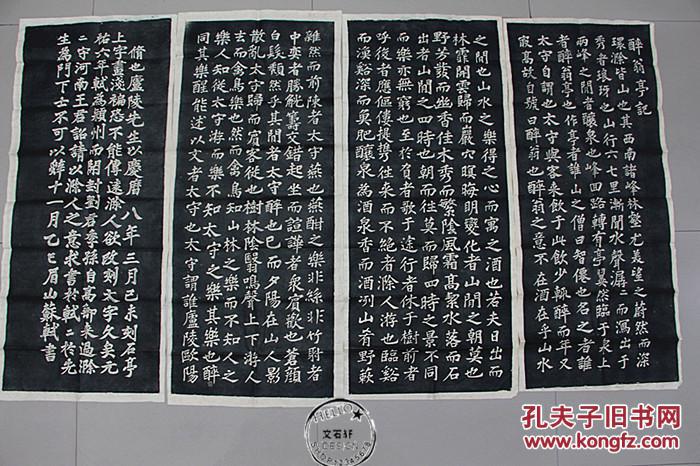 醉翁亭記
環滁皆山也其西南諸峰林壑尤美望之蔚然而深
秀者琅琊也山行六七里漸聞水聲潺二而瀉出于
兩峰之間者釀泉也峰回路轉有亭翼然臨于泉上
者醉翁亭也作亭者誰山之僧曰智僊也名之者誰
太守自謂也太守與客來飲于此飲少輒醉而年又
最高故自號曰醉翁也醉翁之意不在酒在乎山水
之間也山水之樂得之心而寓之酒也若夫日出而
林霏開雲歸而巖穴暝晦明變化者山間之朝莫也
野芳發而幽香佳木秀而繁陰風霜高絜水落而石
出者山間之四時也朝而往莫而歸四時之景不同
而樂亦無窮也至於負者歌于塗行者休于樹前者
呼後者應傴僂提攜往來而不絕者滁人游也臨谿
而漁谿深而魚肥釀泉為酒泉香而酒洌山肴野蔌
雜然而前陳者太守燕也燕酣之樂非絲非竹射者
中奕者勝觥籌交錯起坐而諠譁者衆賓歡也蒼顏
白髮頹然乎其間者太守醉也已而夕陽在山人影
散亂太守歸而賓客從也樹林陰翳鳴聲上下游人
去而禽鳥樂也然而禽鳥知山林之樂而不知人之
樂人知從太守游而樂不知太守之樂其樂也醉
同其樂醒能述以文者太守也太守謂誰廬陵歐陽
脩也廬陵先生以慶曆八年三月己未刻石亭
上字畫淺褊恐不能傳遠滁人欲改刻大字久矣元
祐六年軾為潁州而開封劉君季孫自高郵來過滁
二守河南王君詔請以滁人之意求書於軾二於先
生為門下士不可以辭十一月乙巳眉山蘇軾書
HELLO
文石轩
DESIGN
孔夫子旧书网
www.kongfz.com